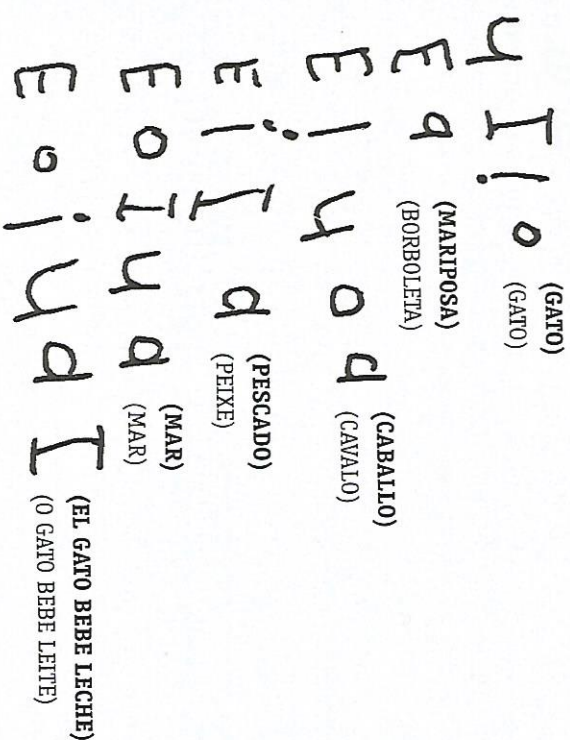 y I ! o (GATO)
(GATO)
E a (MARIPOSA)
(BORBOLETA)
E i y o d (CABALLO)
(CAVALO)
E i I d (PESCADO)
(PEIXE)
E o I y a (MAR)
(MAR)
E o i y d I (EL GATO BEBE LECHE)
(O GATO BEBE LEITE)